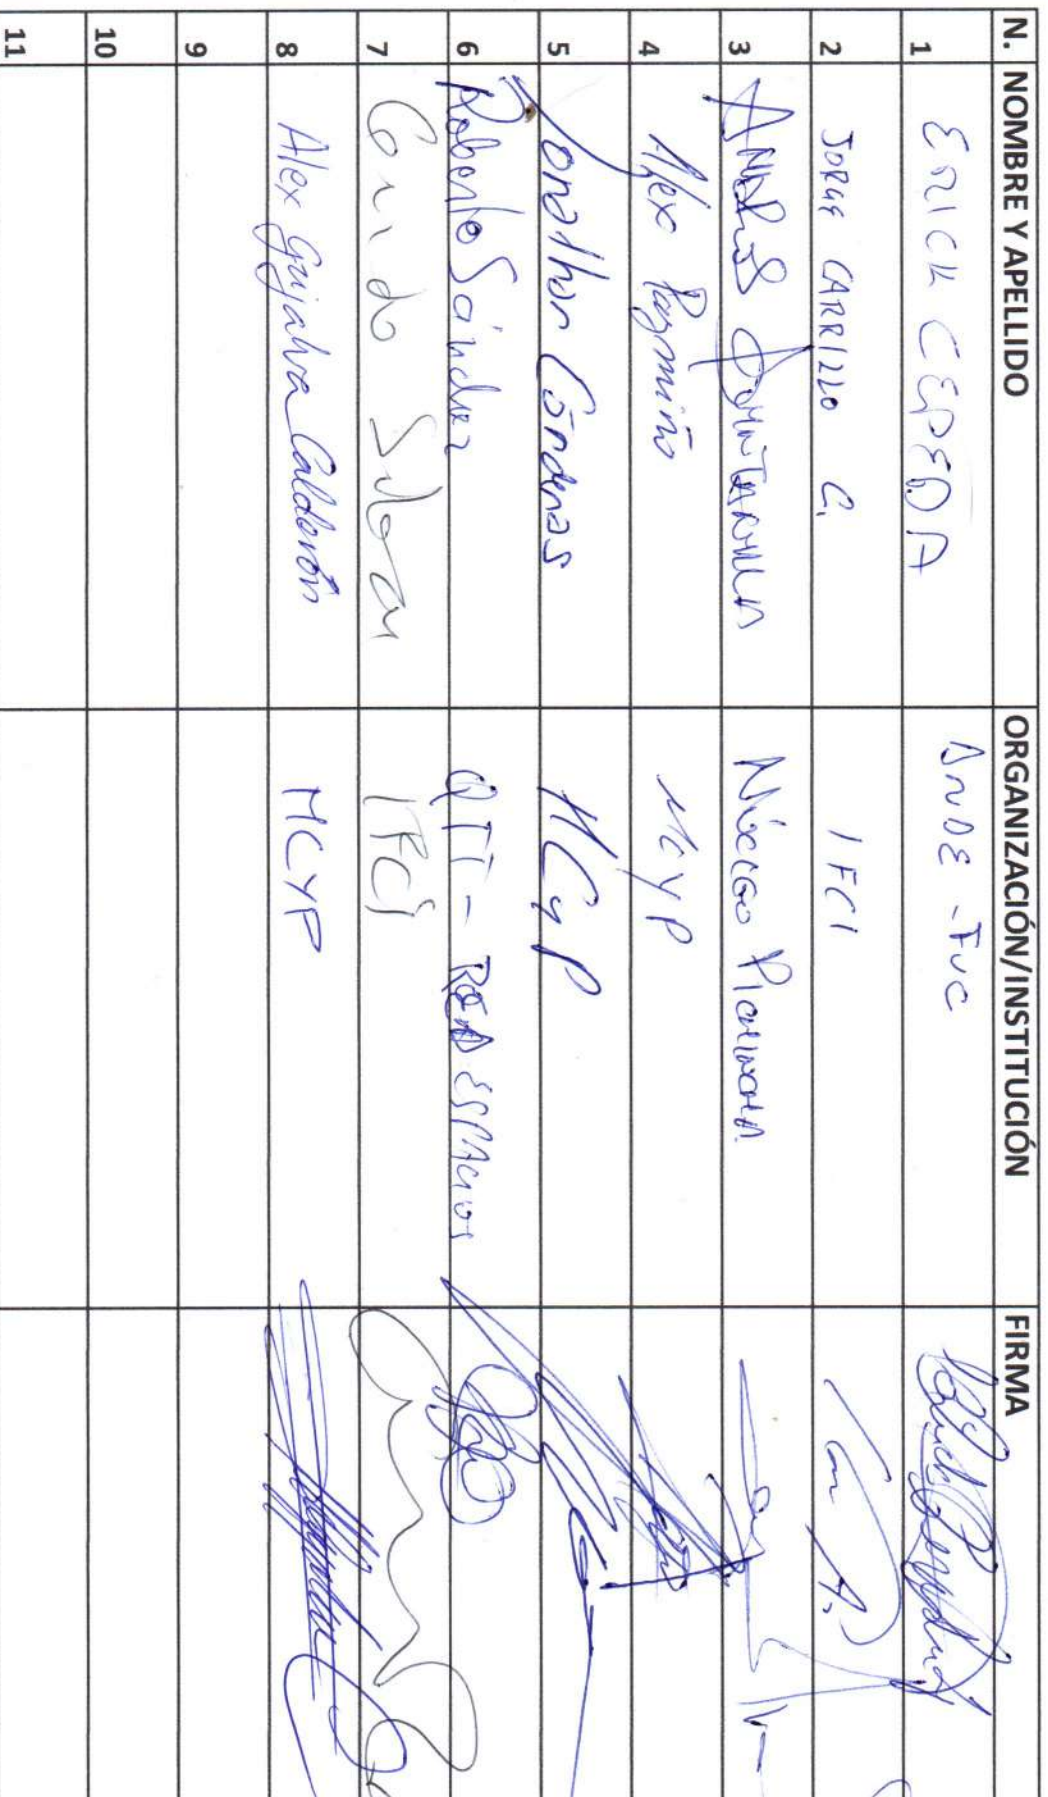 N. NOMBRE Y APELLIDO ORGANIZACIÓN/INSTITUCIÓN FIRMA
1 ERICK CEPEDA ANDE - FUC
2 JORGE CARRILLO C. IFCI
3 ANDRES QUINTANILLA Núcleo Pichincha
4 Alex Pazmiño MCyP
5 Jonathan Cárdenas MCyP
6 Roberto Sánchez QTT - RED ESPACIOS
7 Guido IFCI
8 Alex Grijalva Calderón MCYP
9
10
11